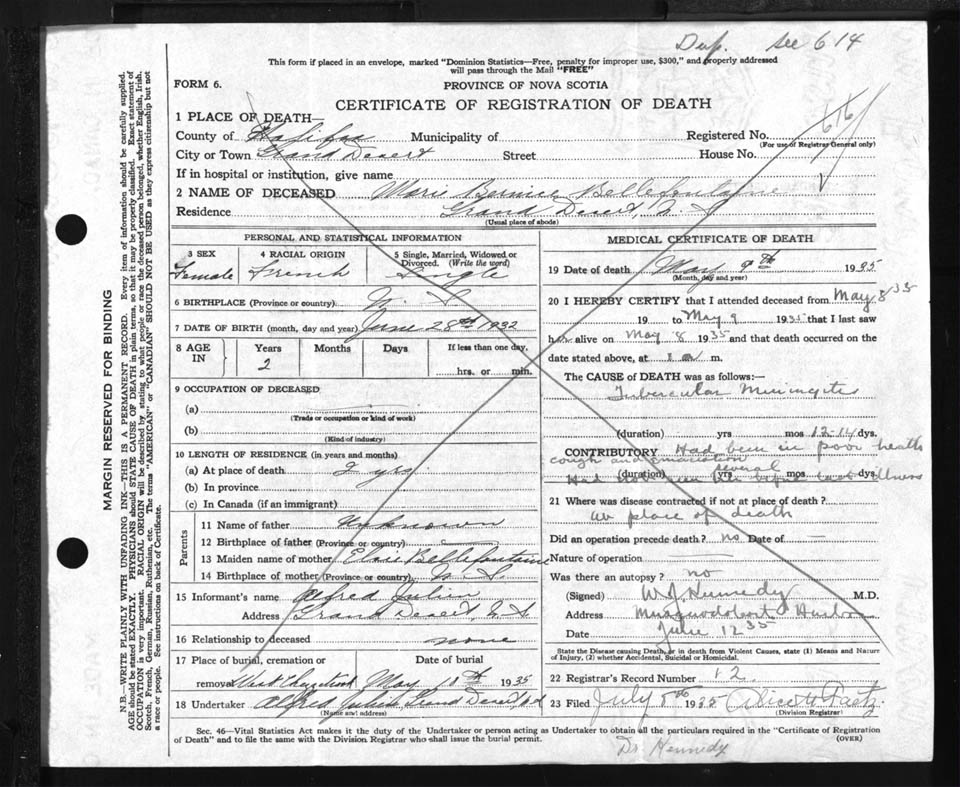 Dup. see 614
This form if placed in an envelope, marked "Dominion Statistics—Free, penalty for improper use, $300," and properly addressed
will pass through the Mail "FREE"
FORM 6.
PROVINCE OF NOVA SCOTIA
CERTIFICATE OF REGISTRATION OF DEATH
1 PLACE OF DEATH—
County of Halifax Municipality of Registered No. 616
(For use of Registrar General only)
City or Town Grand Desert Street House No.
If in hospital or institution, give name
2 NAME OF DECEASED Marie Bernice Bellefontaine
Residence Grand Desert, N. S.
(Usual place of abode)
PERSONAL AND STATISTICAL INFORMATION
3 SEX 4 RACIAL ORIGIN 5 Single, Married, Widowed or
Divorced. (Write the word)
Female French Single
6 BIRTHPLACE (Province or country) N. S.
7 DATE OF BIRTH (month, day and year) June 28th 1932
8 AGE IN Years Months Days If less than one day,
2 hrs. or min.
9 OCCUPATION OF DECEASED
(a)
(Trade or occupation or kind of work)
(b)
(Kind of industry)
10 LENGTH OF RESIDENCE (in years and months)
(a) At place of death 2 yrs.
(b) In province
(c) In Canada (if an immigrant)
Parents
11 Name of father Unknown
12 Birthplace of father (Province or country) —
13 Maiden name of mother Elsie Bellefontaine
14 Birthplace of mother (Province or country) N. S.
15 Informant's name Alfred Julien
Address Grand Desert, N. S.
16 Relationship to deceased none
17 Place of burial, cremation or Date of burial
removal West Chezzetcook May 10th 1935
18 Undertaker Alfred Julien Grand Desert N S
(Name and address)
MEDICAL CERTIFICATE OF DEATH
19 Date of death May 9th 1935
(Month, day and year)
20 I HEREBY CERTIFY that I attended deceased from May 8 35
19 to May 9 1935 that I last saw
her alive on May 8 1935 and that death occurred on the
date stated above, at 1 a m.
The CAUSE of DEATH was as follows:—
Tubercular Meningites
(duration) yrs mos 12-14 dys.
CONTRIBUTORY Had been in poor health
cough and emaciation several
(duration) yrs mos dys.
Had before last illness
21 Where was disease contracted if not at place of death?
At place of death
Did an operation precede death? no Date of —
Nature of operation
Was there an autopsy? no
(Signed) W J Kennedy M.D.
Address Musquodoboit Harbor
Date June 12 35
State the Disease causing Death, or in death from Violent Causes, state (1) Means and Nature
of Injury, (2) whether Accidental, Suicidal or Homicidal.
22 Registrar's Record Number 12
23 Filed July 8th 1935
(Division Registrar)
Sec. 46—Vital Statistics Act makes it the duty of the Undertaker or person acting as Undertaker to obtain all the particulars required in the "Certificate of Registration
of Death" and to file the same with the Division Registrar who shall issue the burial permit. (OVER)
Dr. Kennedy
MARGIN RESERVED FOR BINDING
N.B.—WRITE PLAINLY WITH UNFADING INK—THIS IS A PERMANENT RECORD. Every item of information should be carefully supplied.
AGE should be stated EXACTLY. PHYSICIANS should STATE CAUSE OF DEATH in plain terms, so that it may be properly classified. Exact statement of
OCCUPATION is very important. RACIAL ORIGIN will be described by stating to what people or race the deceased person belonged, whether English, Irish,
Scotch, French, German, Russian, Ruthenian, etc. The terms "AMERICAN" or "CANADIAN SHOULD NOT BE USED as they express citizenship but not
a race or people. See instructions on back of Certificate.